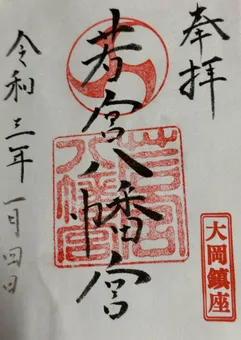 奉拝
若宮八幡宮
若宮八幡宮
大岡鎮座
令和三年一月四日